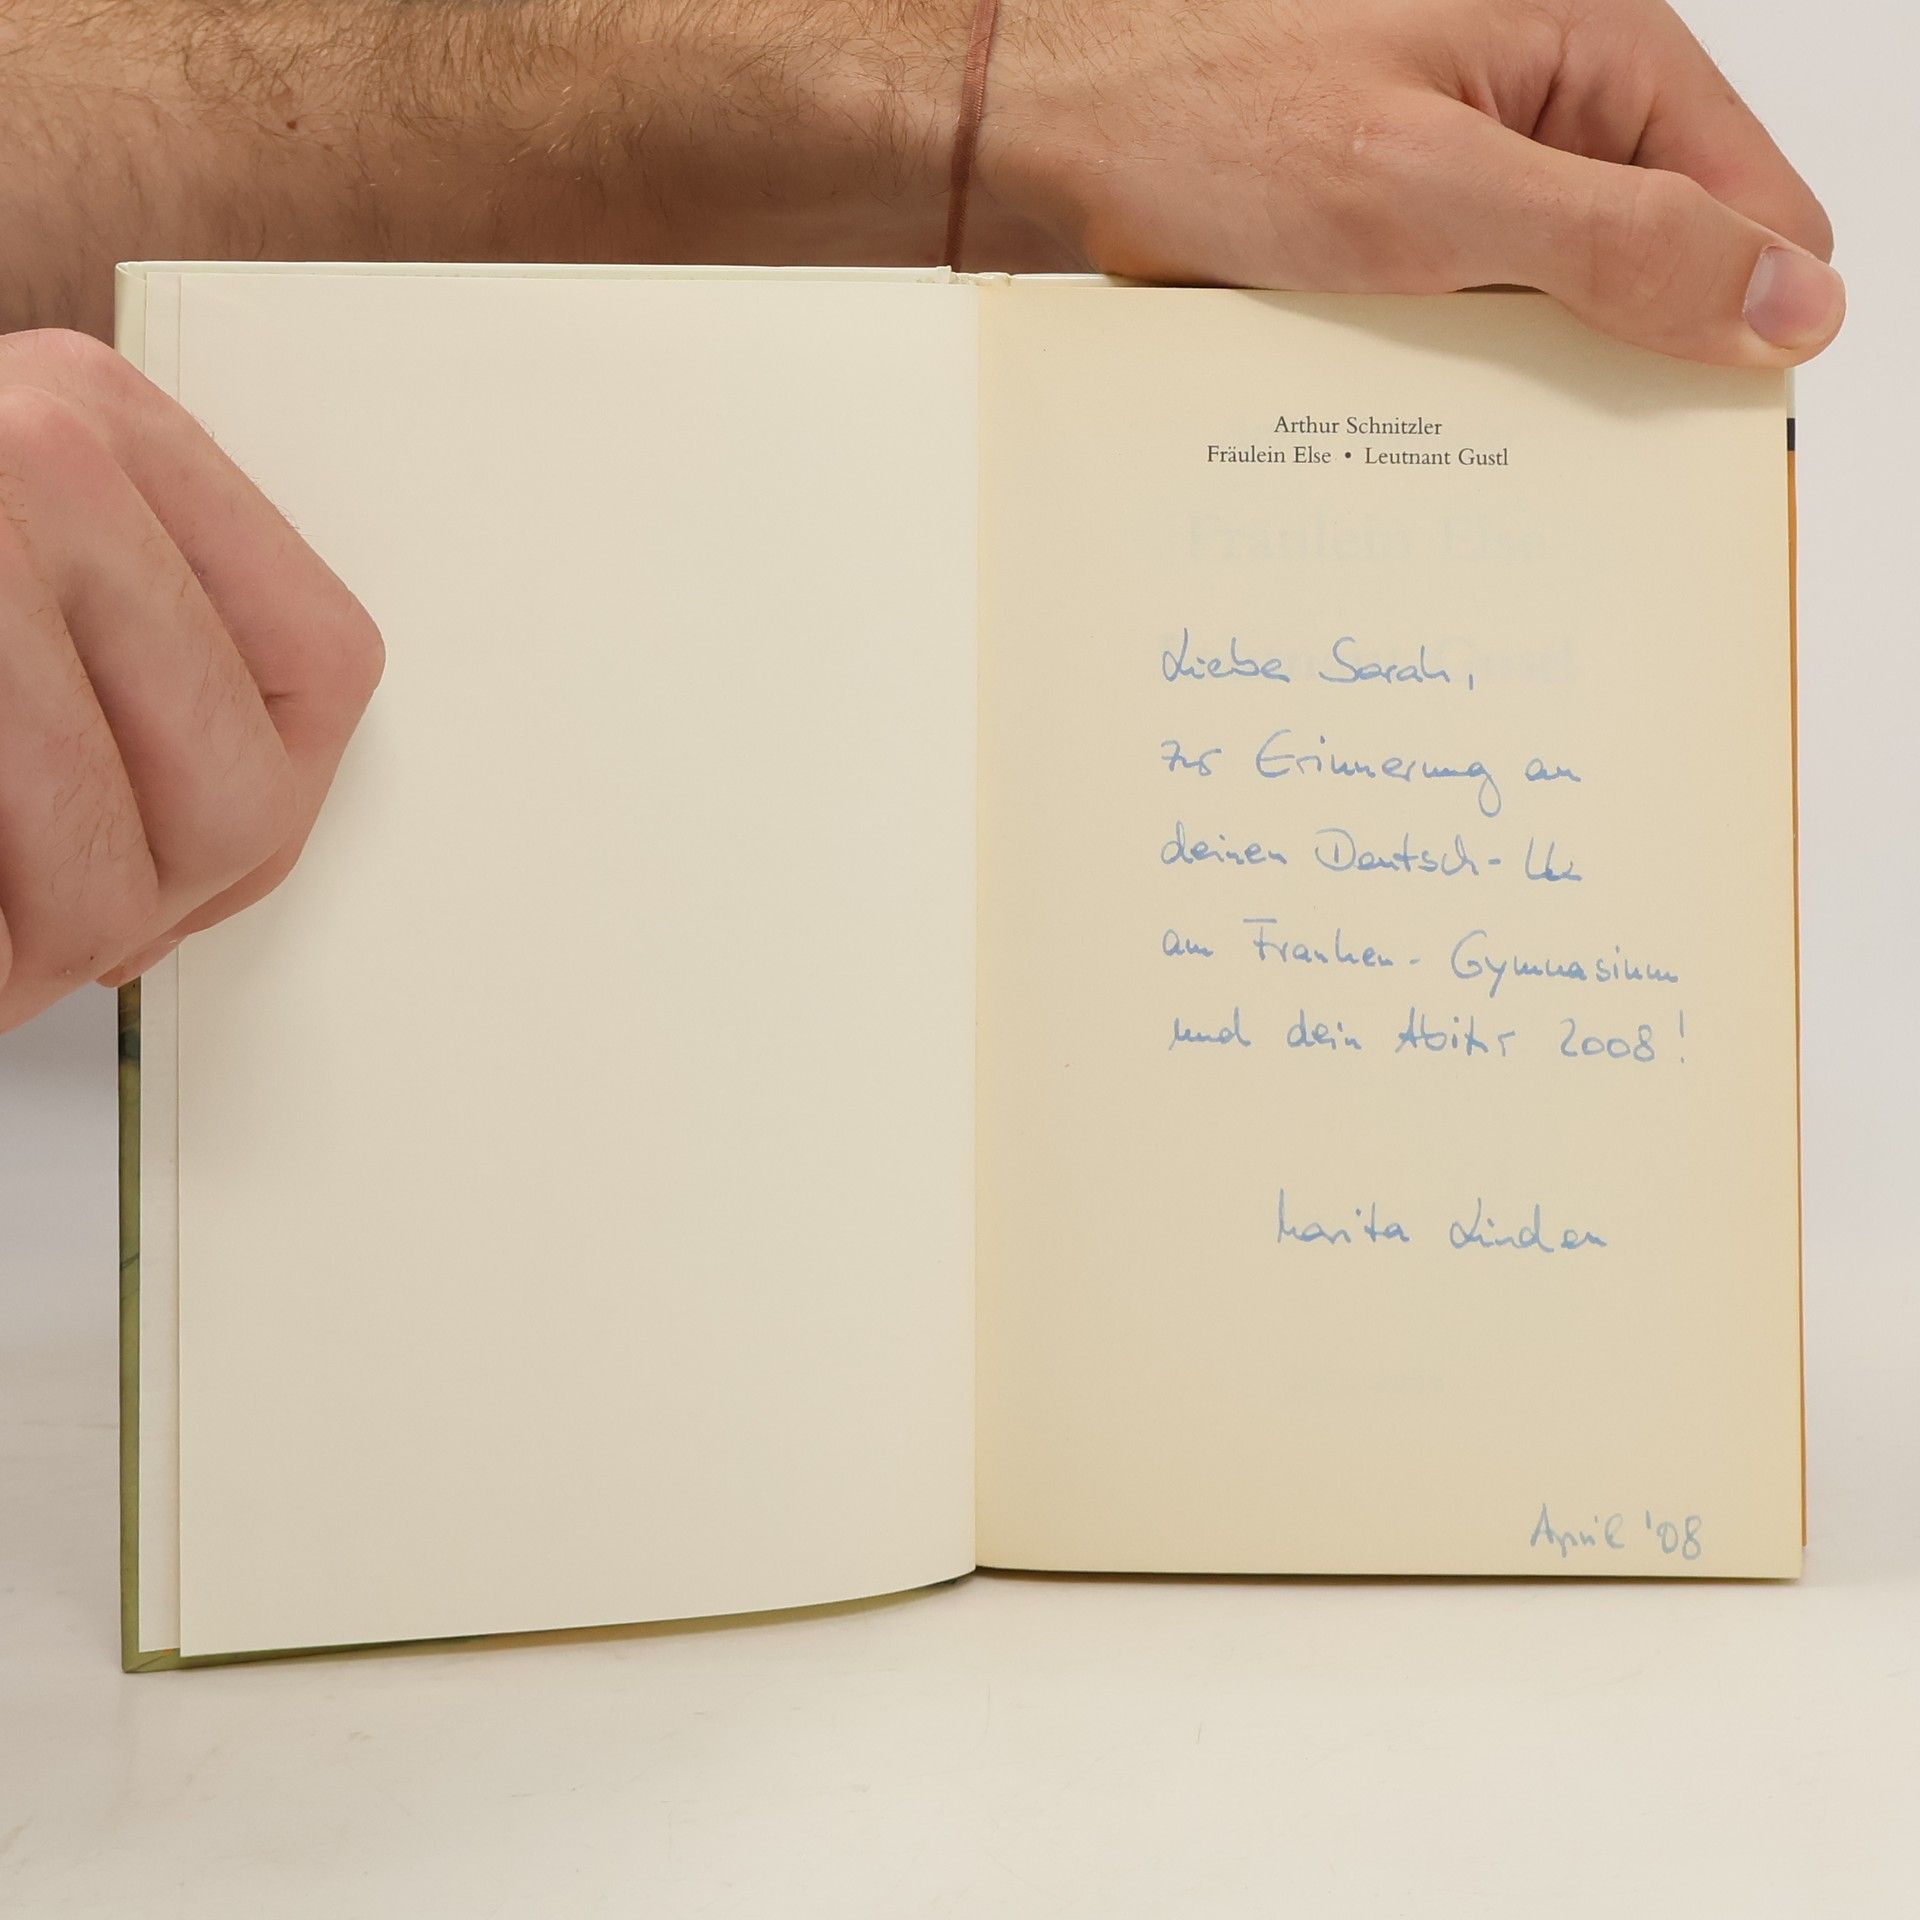 Arthur Schnitzler
Fräulein Else • Leutnant Gustl
Fräulein Else
Gustl
Liebe Sarah,
zur Erinnerung an
deinen Deutsch-LK
am Franken-Gymnasium
und dein Abitur 2008!
Marita Linden
April '08